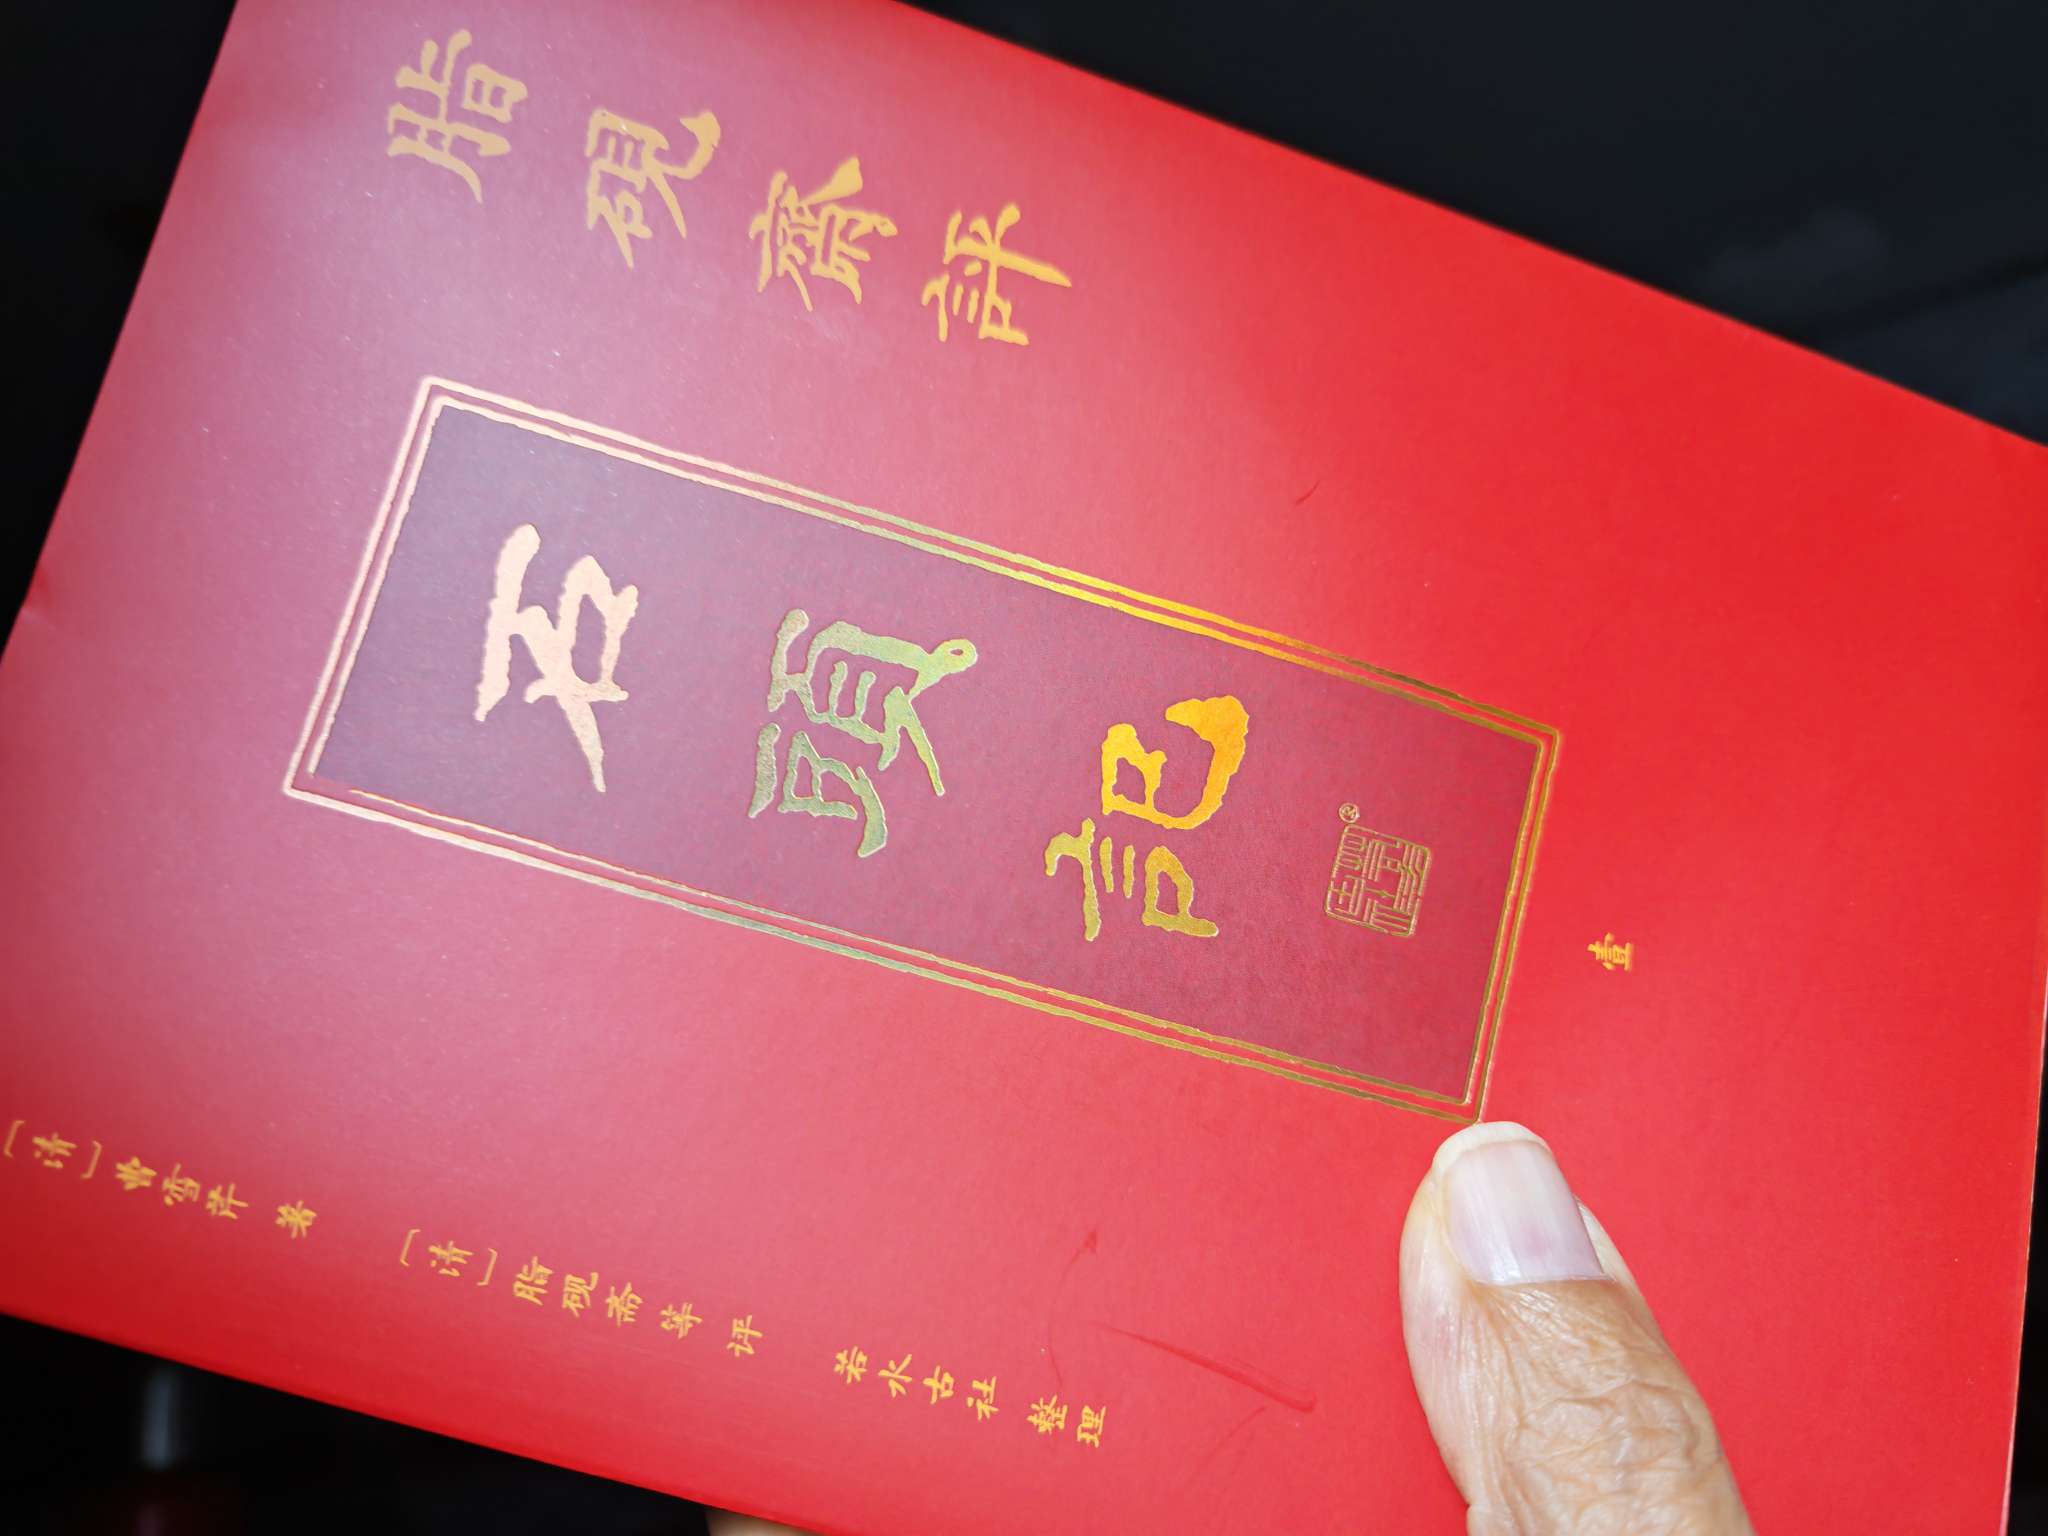 脂硯齋評
石頭記
®
壹
［清］曹雪芹 著 ［清］脂砚斋 等 评 若水古社 整理